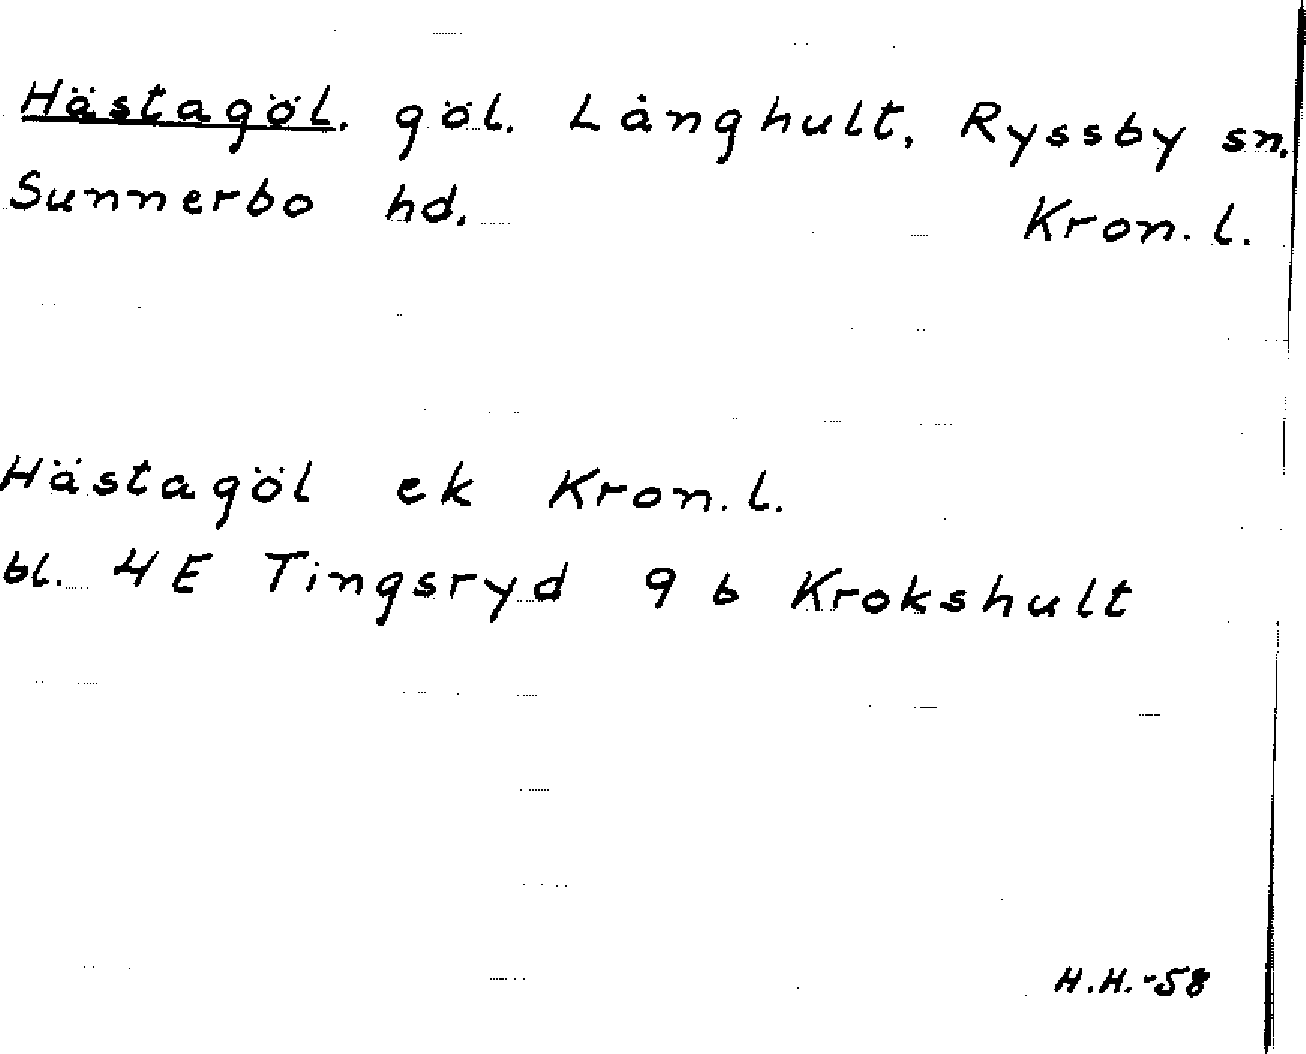 Hästagöl. göl. Långhult, Ryssby sn.
Sunnerbo hd. Kron. l.
Hästagöl ek Kron. l.
bl. 4E Tingsryd 9 b Krokshult
H.H.-58